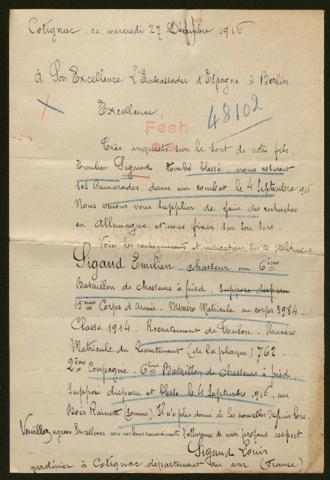 Cotignac, ce mercredi 27 Décembre 1916
À Son Excellence L'Embassader d'Espagne à Berlin
Excellence,
48102
Fech
Très inquiets sur le sort de notre fils
Emilien Sigaud tombé blessé, nous assurent
ses Camarades, dans un combat le 4 Septembre 916
Nous venons vous supplier de faire des recherches
en Allemagne et nous fixer sur son sort.
Voici les renseignements et indication sur ce
Sigaud Emilien, chasseur au 6ème
Bataillon de chasseurs à pied, supposé disparu
15ème Corps d'Armée. Numéro Matricule au corps 5984
Classe 1914. Recrutement de Toulon. Numéro
Matricule du Recrutement (de la plaque) 762.
2ème Compagnie. 6ème Bataillon de chasseurs à pied.
Supposé disparu et blessé le 4 Septembre 1916, au
Bois Rainette (Somme). Il n'a plus donné de ses nouvelles Depuis lors.
Veuillez agréer Excellence avec nos l'hommage de mon profond respect
Sigaud Louis
jardinier à Cotignac, département du var (France)